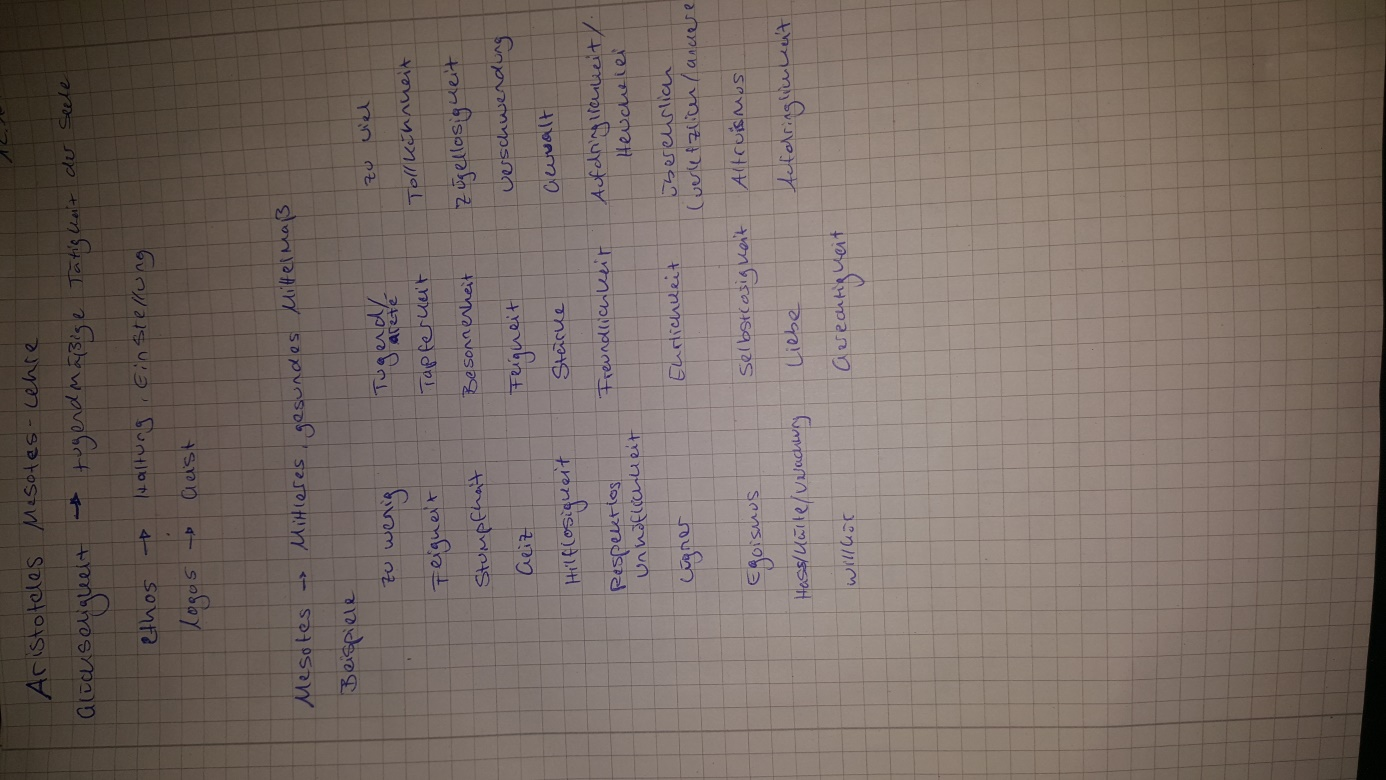 Aristoteles Mesotes-Lehre
Glückseligkeit → tugendmäßige Tätigkeit der Seele
ethos → Haltung, Einstellung
Logos → Geist
Mesotes → Mittleres, gesundes Mittelmaß
Beispiele
zu wenig Tugend/arete zu viel
Feigheit Tapferkeit Tollkühnheit
Stumpfheit Besonnenheit Zügellosigkeit
Geiz Feigheit Verschwendung
Hilflosigkeit Stärke Gewalt
Respektlos Freundlichkeit Aufdringlichkeit/
Unhöflichkeit Heuchelei
Lügner Ehrlichkeit überehrlich
(verletzlich/andere
Egoismus Selbstlosigkeit Altruismus
Hass/Kälte/Verachtung Liebe Aufdringlichkeit
Willkür Gerechtigkeit